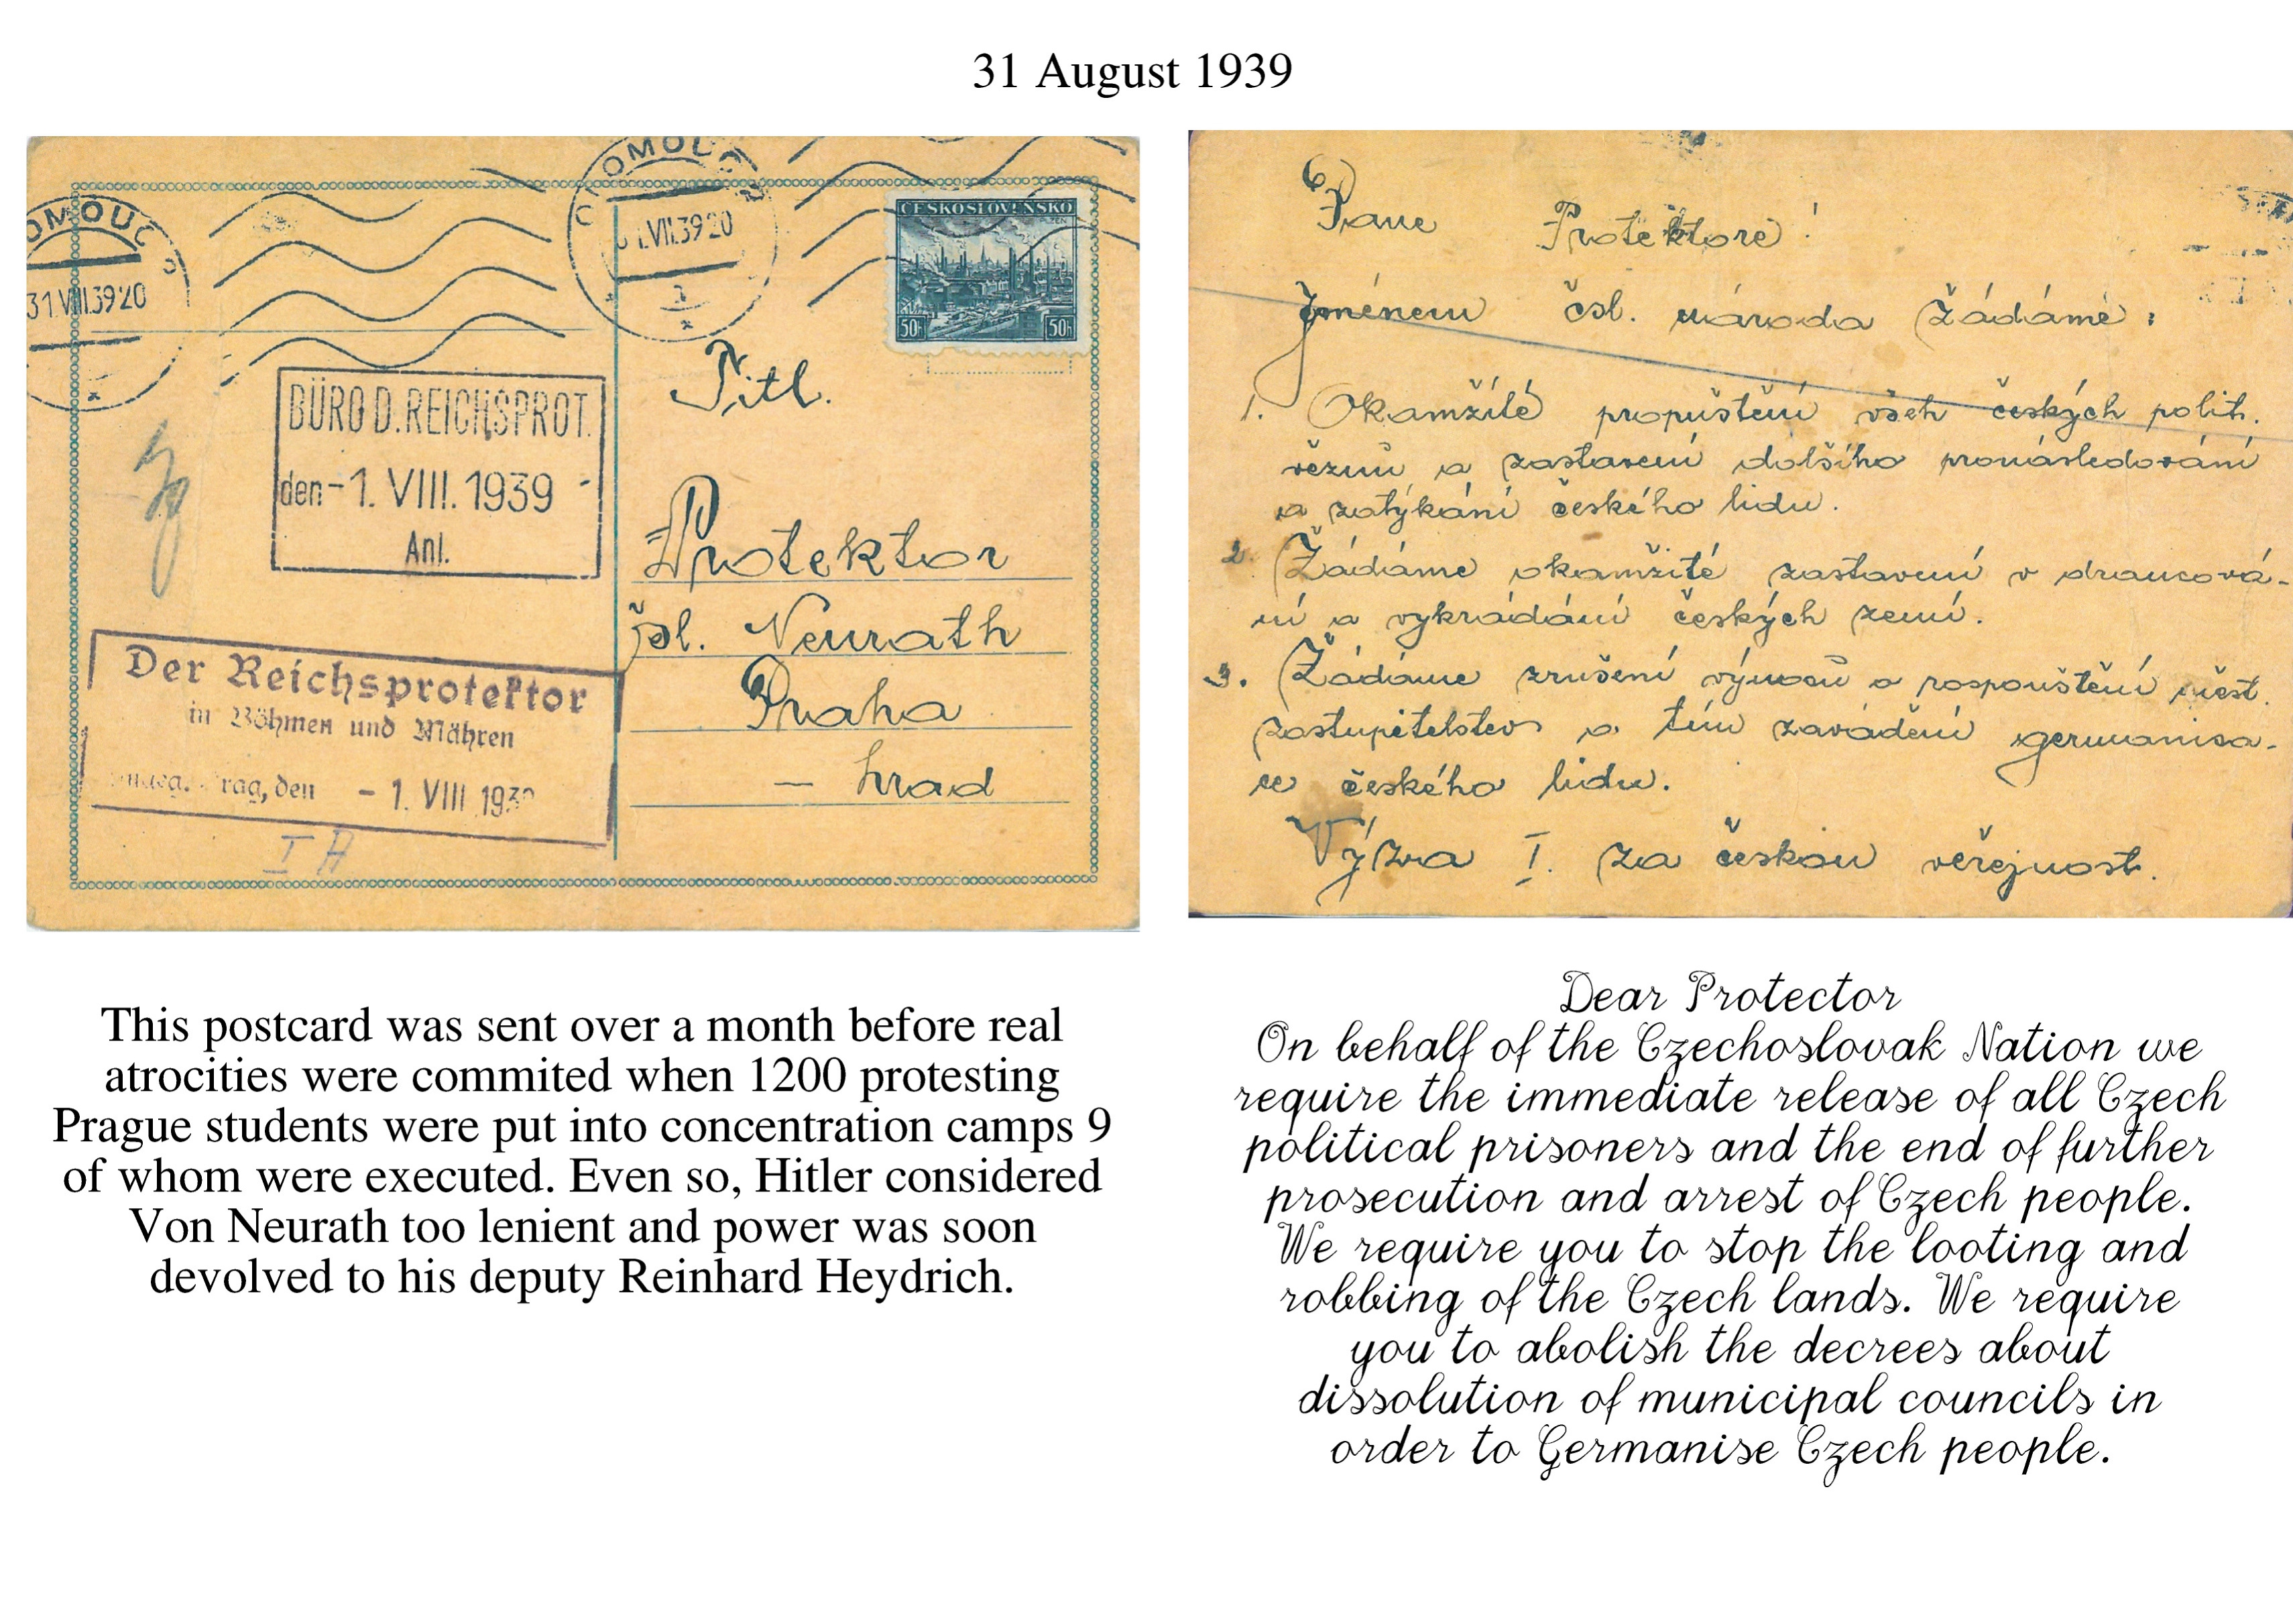 31 August 1939
OLOMOUC
31.VII.39 20
OMOUC
31.VII.39 20
ČESKOSLOVENSKO
PLZEŇ
50h
50h
BÜRO D. REICHSPROT.
den -1. VIII. 1939
Anl.
Titl.
Protektor
čsl. Neurath
Praha
- hrad
Der Reichsprotektor
in Böhmen und Mähren
rag, den - 1. VIII 193
Pane Protektore!
Jménem čsl. národa žádáme:
1. Okamžité propuštění všeh českých polit.
vězňů a zastavení dalšího pronásledování
a zatýkání českého lidu.
2. Žádáme okamžité zastavení v drancová-
ní a vykrádání českých zemí.
3. Žádáme zrušení výnosů o rozpouštění měst.
zastupitelstev a tím zavádění germanisa-
ce českého lidu.
Výzva I. za českou veřejnost.
This postcard was sent over a month before real
atrocities were commited when 1200 protesting
Prague students were put into concentration camps 9
of whom were executed. Even so, Hitler considered
Von Neurath too lenient and power was soon
devolved to his deputy Reinhard Heydrich.
Dear Protector
On behalf of the Czechoslovak Nation we
require the immediate release of all Czech
political prisoners and the end of further
prosecution and arrest of Czech people.
We require you to stop the looting and
robbing of the Czech lands. We require
you to abolish the decrees about
dissolution of municipal councils in
order to Germanise Czech people.